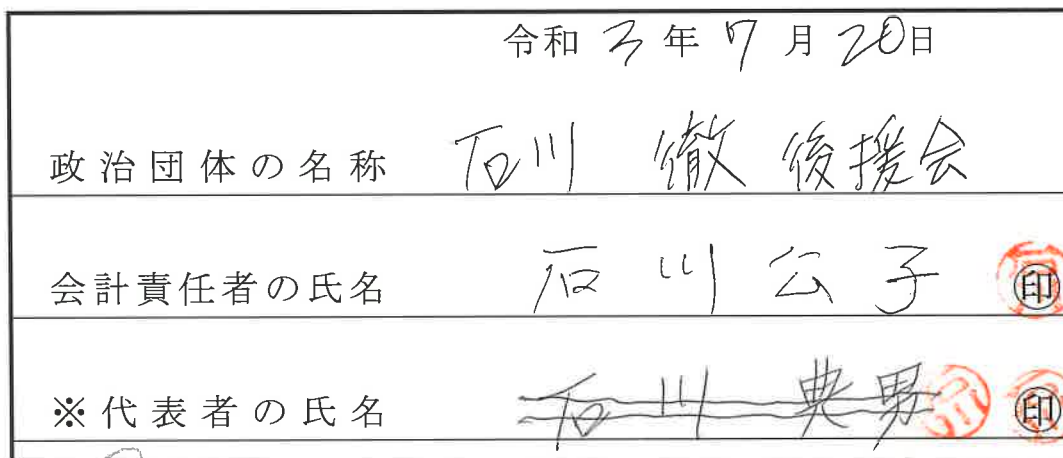 令和3年7月20日
政治団体の名称 石川 徹 後援会
会計責任者の氏名 石川公子 ㊞
※代表者の氏名 石川典男 ㊞